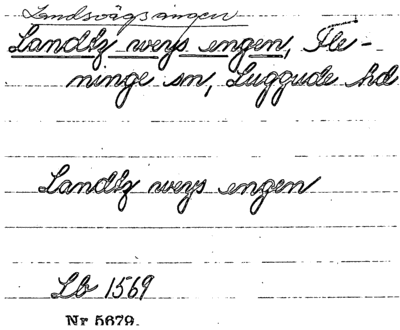 Landsvägsängen
Landtz weys engen, Fle-
ninge sn, Luggude hd
Landtz weys engen
Lb 1569
Nr 5679.